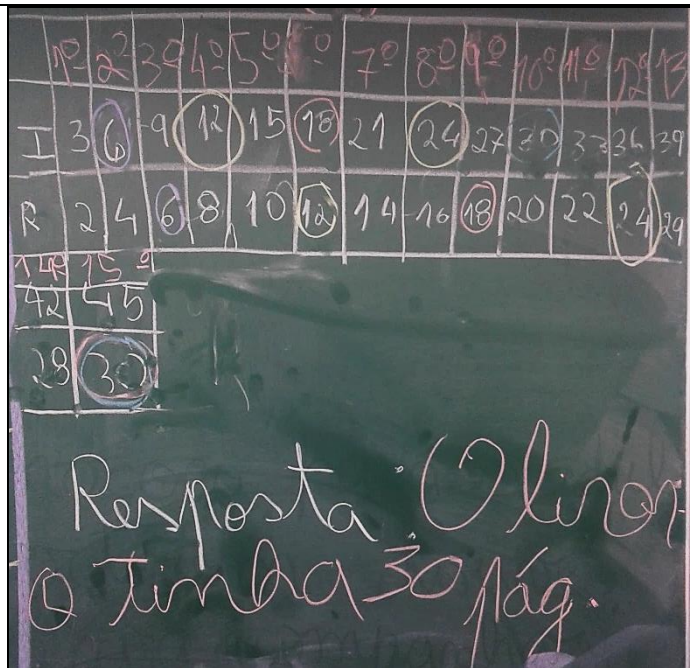 1º 2º 3º 4º 5º 6º 7º 8º 9º 10º 11º 12º 13
I 3 6 9 12 15 18 21 24 27 30 33 36 39
R 2 4 6 8 10 12 14 16 18 20 22 24 29
14º 15º
42 45
28 30
Resposta: O livro
o tinha 30 pág.